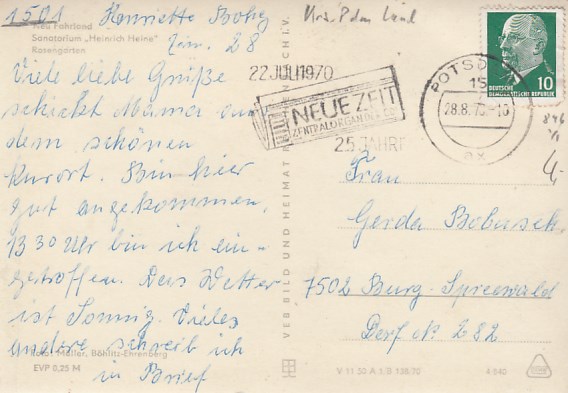 1501 Henriette
Zim. 28
Neu Fahrland
Sanatorium „Heinrich Heine"
Rosengarten
Viele liebe Grüße
schickt Mama aus
dem schönen
Kurort. Bin hier
gut angekommen,
13 30 Uhr bin ich ein-
getroffen. Das Wetter
ist Sonnig. Vieles
andere schreib ich
in Brief
Foto: Müller, Böhlitz-Ehrenberg
EVP 0,25 M
VEB BILD UND HEIMAT
22 JULI 1970
NEUE ZEIT
ZENTRALORGAN DER CDU
25 JAHRE
POTSDAM
15
28.8.70-10
DEUTSCHE
DEMOKRATISCHE REPUBLIK
10
Frau
Gerda
7502 Burg-Spreewald
Dorf No 282
V 11 50 A 1 B 138/70
4 040